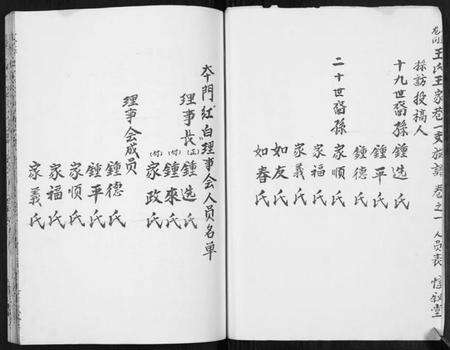 龙山王氏王家巷一支族譜 卷之一 人員表 惇叙堂
採訪授福人
十九世裔孫 鍾选氏
鍾平氏
鍾德氏
二十世裔孫 家順氏
家福氏
家義氏
如友氏
如春氏
夲門紅白理事会人员名单
理事長(正) 鍾选氏
(付) 鍾來氏
(付) 家政氏
理事会成员
鍾德氏
鍾平氏
家順氏
家福氏
家義氏